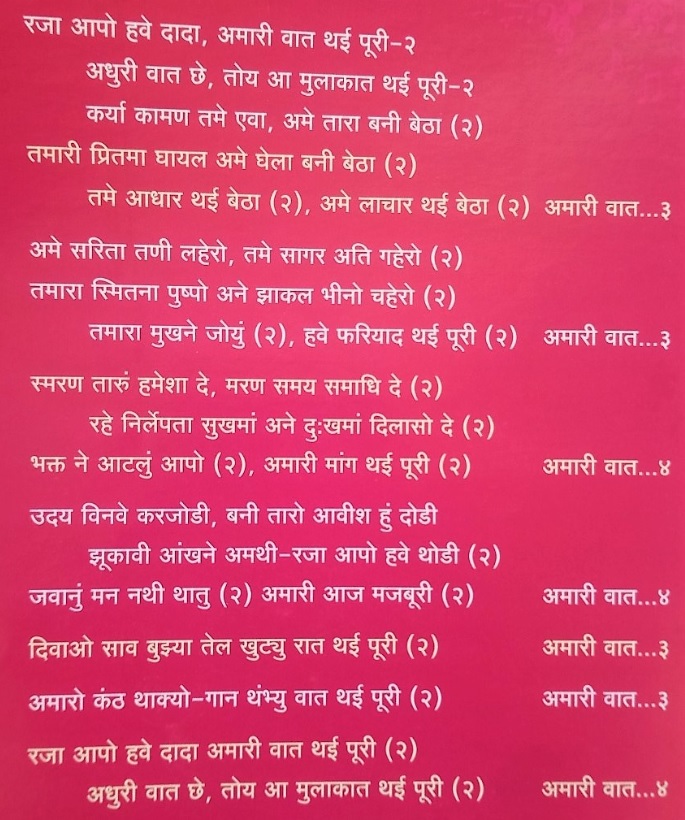 रजा आपो हवे दादा, अमारी वात थई पूरी-२
अधुरी वात छे, तोय आ मुलाकात थई पूरी-२
कर्या कामण तमे एवा, अमे तारा बनी बेठा (२)
तमारी प्रितमा घायल अमे घेला बनी बेठा (२)
तमे आधार थई बेठा (२), अमे लाचार थई बेठा (२) अमारी वात...३
अमे सरिता तणी लहेरो, तमे सागर अति गहेरो (२)
तमारा स्मितना पुष्पो अने झाकल भीनो चहेरो (२)
तमारा मुखने जोयुं (२), हवे फरियाद थई पूरी (२) अमारी वात...३
स्मरण तारुं हमेशा दे, मरण समय समाधि दे (२)
रहे निर्लेपता सुखमां अने दुःखमां दिलासो दे (२)
भक्त ने आटलुं आपो (२), अमारी मांग थई पूरी (२) अमारी वात...४
उदय विनवे करजोडी, बनी तारो आवीश हुं दोडी
झूकावी आंखने अमथी-रजा आपो हवे थोडी (२)
जवानुं मन नथी थातु (२) अमारी आज मजबूरी (२) अमारी वात...४
दिवाओ साव बुझ्या तेल खुट्यु रात थई पूरी (२) अमारी वात...३
अमारो कंठ थाक्यो-गान थंभ्यु वात थई पूरी (२) अमारी वात...३
रजा आपो हवे दादा अमारी वात थई पूरी (२)
अधुरी वात छे, तोय आ मुलाकात थई पूरी (२) अमारी वात...४